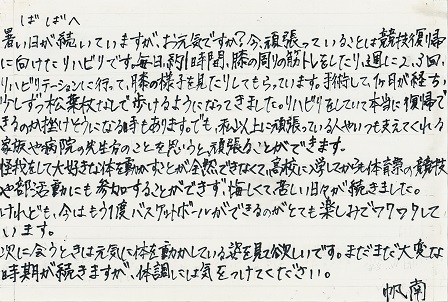 ばぁばへ
暑い日が続いていますが、お元気ですか?今、頑張っていることは競技復帰
に向けたリハビリです。毎日、約1時間、膝の周りの筋トレをしたり、週に2、3回、
リハビリテーションに行って、膝の様子を見たりしてもらっています。手術して、1ヶ月が経ち、
少しずつ松葉杖なしで歩けるようになってきました。リハビリをしていて本当に復帰で
きるのか挫けそうになる時もあります。でも、私以上に頑張っている人やいつも支えてくれる
家族や病院の先生方のことを思うと、頑張ることができます。
怪我をして大好きな体を動かすことが全然できなくて、高校に入学してからも体育祭の競技
や部活動にも参加することができず悔しくて、苦しい日々が続きました。
けれども、今はもう1度バスケットボールができるのがとても楽しみでワクワクして
います。
次に会うときは元気に体を動かしている姿を見て欲しいです。まだまだ大変な
時期が続きますが、体調には気をつけてください。
帆南